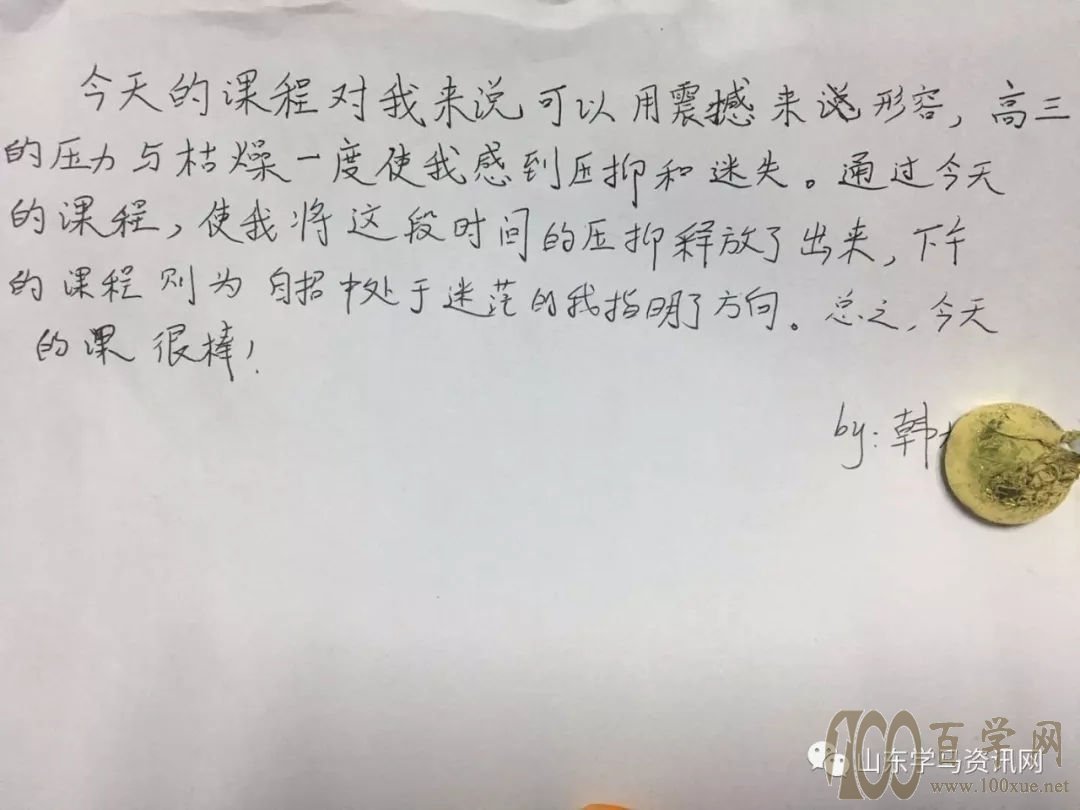 今天的课程对我来说可以用震撼来说形容，高三
的压力与枯燥一度使我感到压抑和迷失。通过今天
的课程，使我将这段时间的压抑释放了出来，下午
的课程则为自招中处于迷茫的我指明了方向。总之，今天
的课很棒！
by：韩
100百学网
山东学马资讯网
www.100xue.net